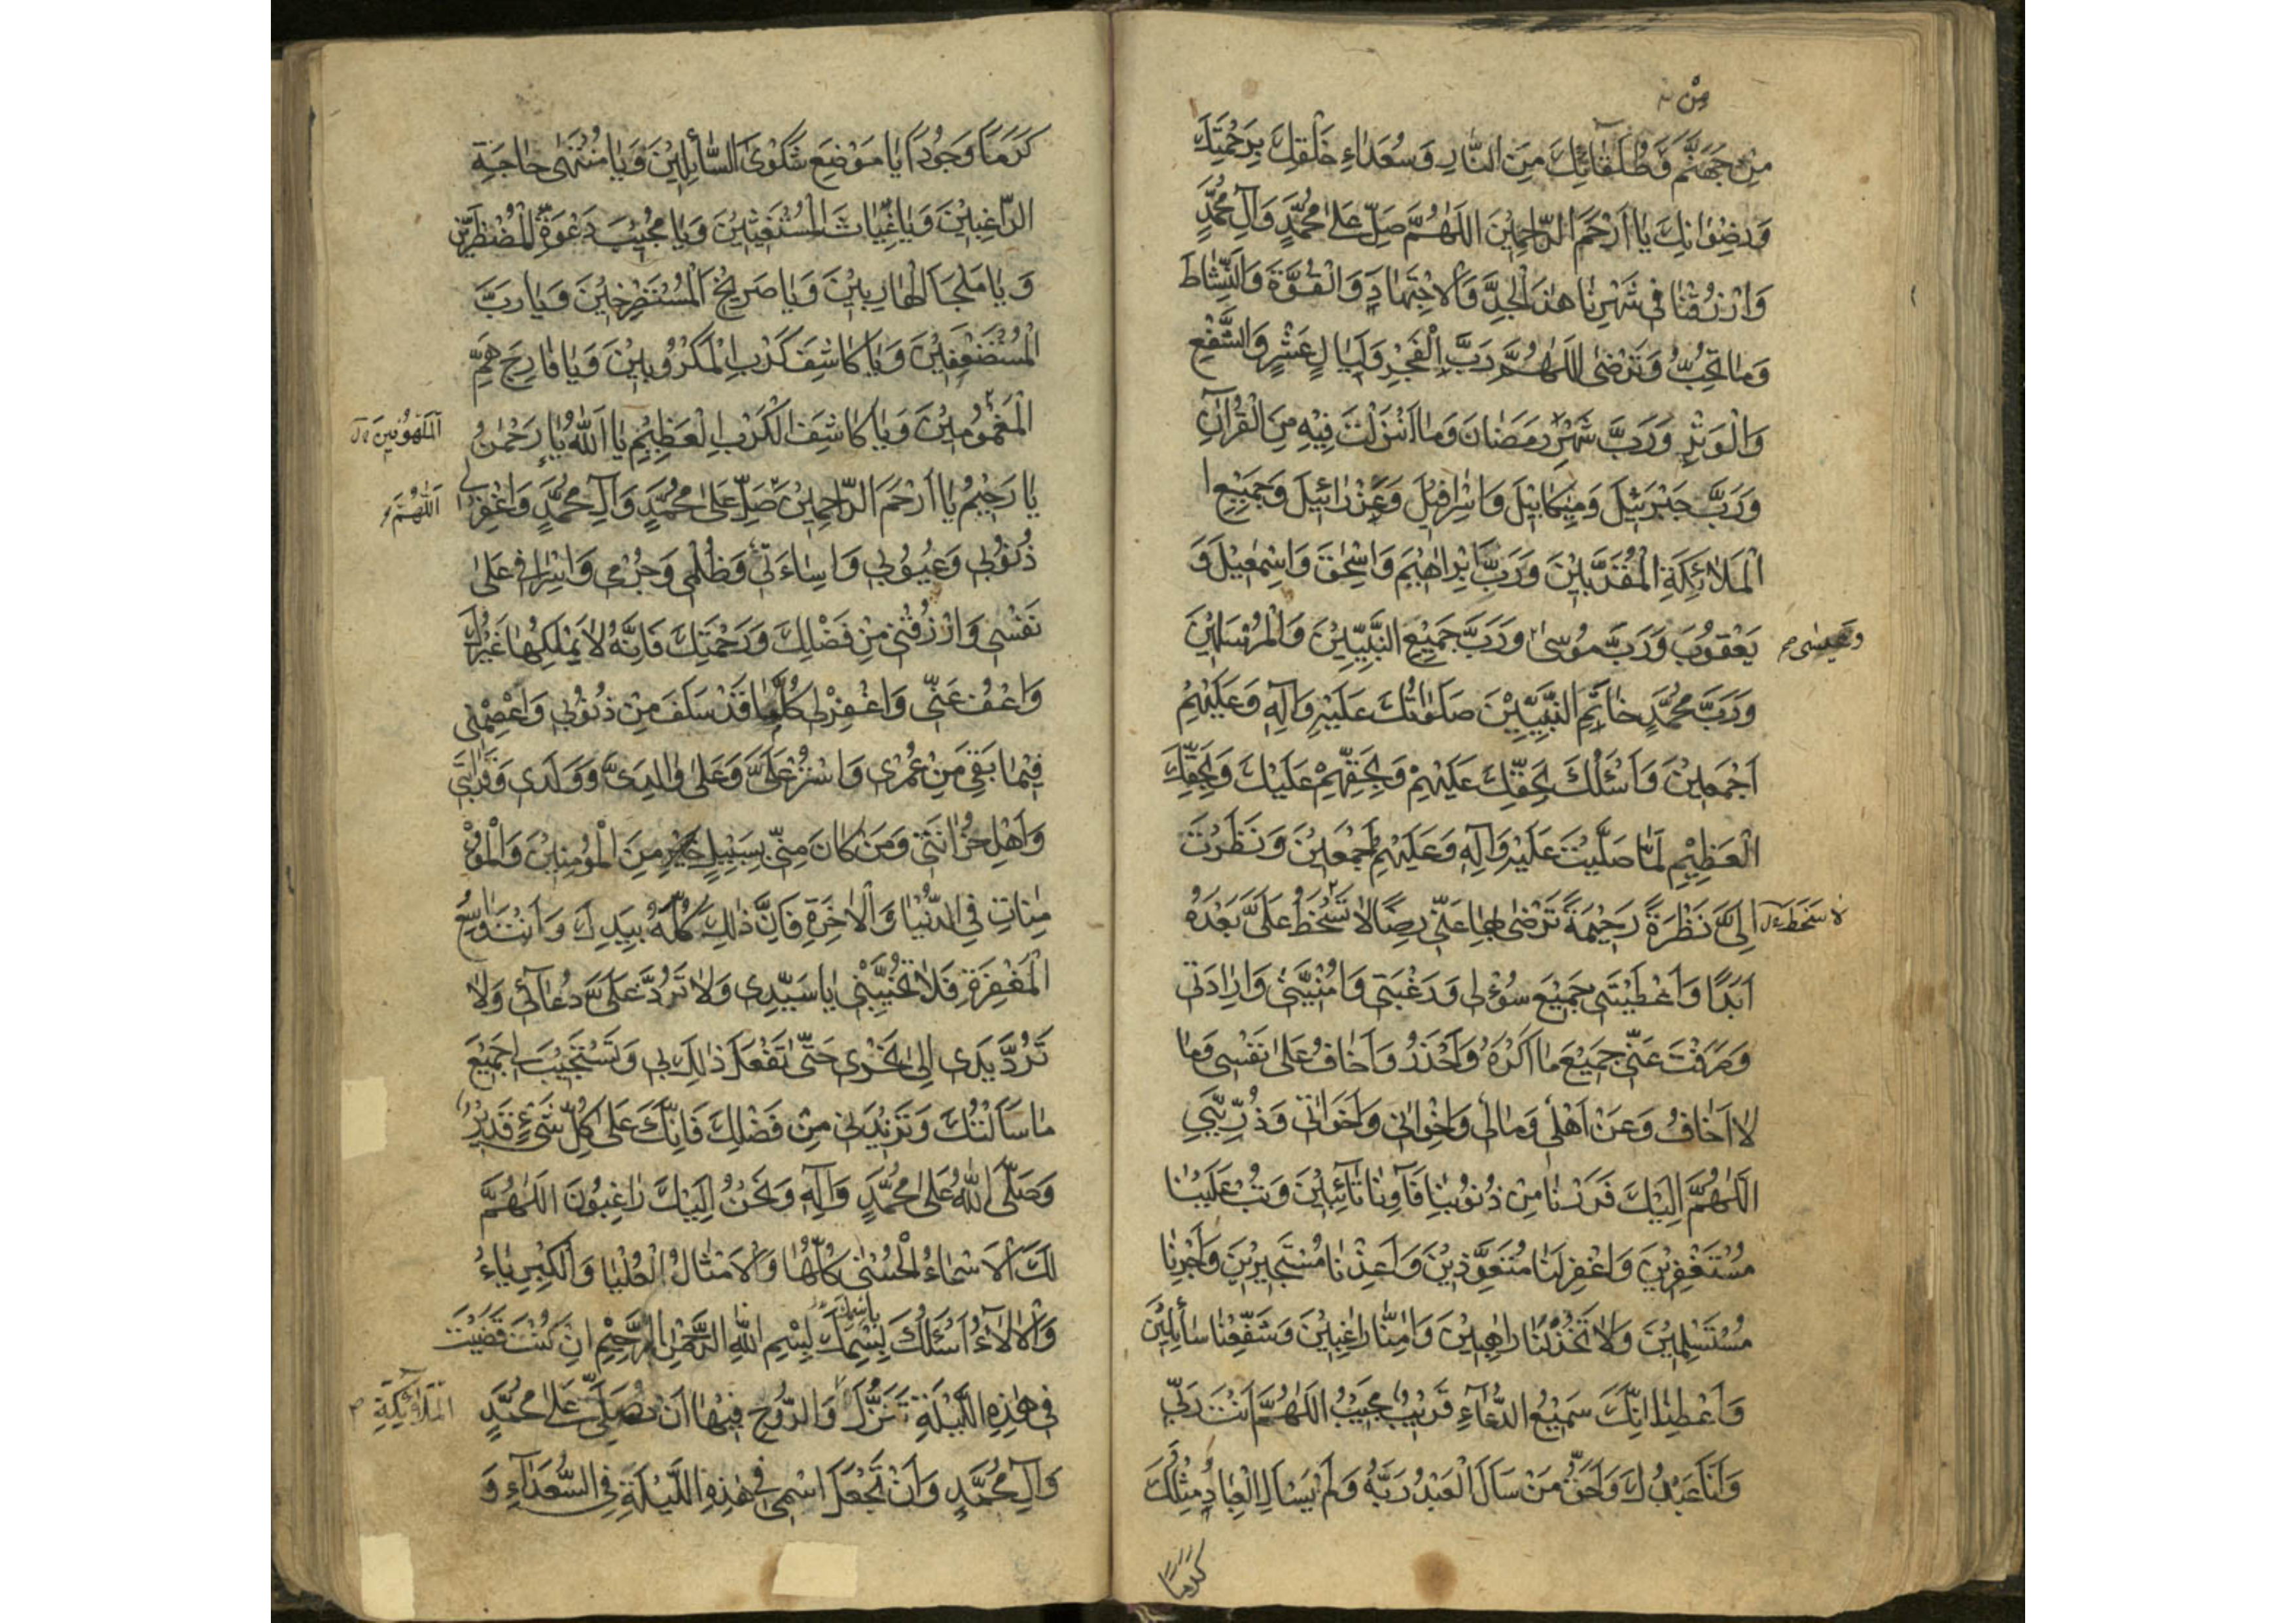 من
مِنْ جَهَنَّمَ وَطُلَقَائِكَ مِنَ النَّارِ وَسُعَدَاءِ خَلْقِكَ بِرَحْمَتِكَ
وَرِضْوَانِكَ يَا أَرْحَمَ الرَّاحِمِينَ اَللَّهُمَّ صَلِّ عَلَى مُحَمَّدٍ وَآلِ مُحَمَّدٍ
وَارْزُقْنَا فِي شَهْرِنَا هٰذَا الْجِدَّ وَالْاِجْتِهَادَ وَالْقُوَّةَ وَالنَّشَاطَ
وَمَا تُحِبُّ وَتَرْضَى اَللَّهُمَّ رَبَّ الْفَجْرِ وَلَيَالٍ عَشْرٍ وَالشَّفْعِ
وَالْوَتْرِ وَرَبَّ شَهْرِ رَمَضَانَ وَمَا اَنْزَلْتَ فِيهِ مِنَ الْقُرْآنِ
وَرَبَّ جَبْرَئِيلَ وَمِيكَائِيلَ وَاِسْرَافِيلَ وَعِزْرَائِيلَ وَجَمِيعِ
الْمَلَائِكَةِ الْمُقَرَّبِينَ وَرَبَّ اِبْرَاهِيمَ وَاِسْحٰقَ وَاِسْمٰعِيلَ وَ
يَعْقُوبَ وَرَبَّ مُوسَى وَرَبَّ جَمِيعِ النَّبِيِّينَ وَالْمُرْسَلِينَ
وعيسى
وَرَبَّ مُحَمَّدٍ خَاتَمِ النَّبِيِّينَ صَلَوَاتُكَ عَلَيْهِ وَآلِهِ وَعَلَيْهِمْ
اَجْمَعِينَ وَاَسْئَلُكَ بِحَقِّكَ عَلَيْهِمْ وَبِحَقِّهِمْ عَلَيْكَ وَبِحَقِّكَ
الْعَظِيمِ لَمَّا صَلَّيْتَ عَلَيْهِ وَآلِهِ وَعَلَيْهِمْ اَجْمَعِينَ وَنَظَرْتَ
اِلَيَّ نَظْرَةً رَحِيمَةً تَرْضَى بِهَا عَنِّي رِضًا لَا تَسْخَطُ عَلَيَّ بَعْدَهُ
لا سخط
اَبَدًا وَاَعْطَيْتَنِي جَمِيعَ سُؤْلِي وَرَغْبَتِي وَاُمْنِيَّتِي وَاِرَادَتِي
وَصَرَفْتَ عَنِّي جَمِيعَ مَا اَكْرَهُ وَاَحْذَرُ وَاَخَافُ عَلَى نَفْسِي وَمَا
لَا اَخَافُ وَعَنْ اَهْلِي وَمَالِي وَاِخْوَانِي وَاَخَوَاتِي وَذُرِّيَّتِي
اَللَّهُمَّ اِلَيْكَ فَرَرْنَا مِنْ ذُنُوبِنَا فَآوِنَا تَائِبِينَ وَتُبْ عَلَيْنَا
مُسْتَغْفِرِينَ وَاغْفِرْ لَنَا مُتَعَوِّذِينَ وَاَعِذْنَا مُسْتَجِيرِينَ وَاَجِرْنَا
مُسْتَسْلِمِينَ وَلَا تَخْذُلْنَا رَاهِبِينَ وَآمِنَّا رَاغِبِينَ وَشَفِّعْنَا سَائِلِينَ
وَاَعْطِنَا اِنَّكَ سَمِيعُ الدُّعَاءِ قَرِيبٌ مُجِيبٌ اَللَّهُمَّ اَنْتَ رَبِّي
وَاَنَا عَبْدُكَ وَاَحَقُّ مَنْ سَأَلَ الْعَبْدُ رَبُّهُ وَلَمْ يَسْأَلِ الْعِبَادُ مِثْلَكَ
كرمًا
كَرَمًا وَجُودًا يَا مَوْضِعَ شَكْوَى السَّائِلِينَ وَيَا مُنْتَهَى حَاجَةِ
الرَّاغِبِينَ وَيَا غِيَاثَ الْمُسْتَغِيثِينَ وَيَا مُجِيبَ دَعْوَةِ الْمُضْطَرِّينَ
وَيَا مَلْجَأَ الْهَارِبِينَ وَيَا صَرِيخَ الْمُسْتَصْرِخِينَ وَيَا رَبَّ
الْمُسْتَضْعَفِينَ وَيَا كَاشِفَ كَرْبِ الْمَكْرُوبِينَ وَيَا فَارِجَ هَمِّ
الْمَغْمُومِينَ وَيَا كَاشِفَ الْكَرْبِ الْعَظِيمِ يَا اَللهُ يَا رَحْمٰنُ
يَا رَحِيمُ يَا اَرْحَمَ الرَّاحِمِينَ صَلِّ عَلَى مُحَمَّدٍ وَآلِ مُحَمَّدٍ وَاغْفِرْ لِي
اللهم
ذُنُوبِي وَعُيُوبِي وَاِسَاءَتِي وَظُلْمِي وَجُرْمِي وَاِسْرَافِي عَلَى
نَفْسِي وَارْزُقْنِي مِنْ فَضْلِكَ وَرَحْمَتِكَ فَاِنَّهُ لَا يَمْلِكُهَا غَيْرُكَ
وَاعْفُ عَنِّي وَاغْفِرْ لِي كُلَّمَا قَدْ سَلَفَ مِنْ ذُنُوبِي وَاعْصِمْنِي
فِيمَا بَقِيَ مِنْ عُمُرِي وَاسْتُرْ عَلَيَّ وَعَلَى وَالِدَيَّ وَوَلَدِي وَقَرَابَتِي
وَاَهْلِ حُزَانَتِي وَمَنْ كَانَ مِنِّي بِسَبِيلٍ خَيْرٍ مِنَ الْمُؤْمِنِينَ وَالْمُؤْ
مِنَاتِ فِي الدُّنْيَا وَالْاٰخِرَةِ فَاِنَّ ذٰلِكَ كُلَّهُ بِيَدِكَ وَاَنْتَ وَاسِعُ
الْمَغْفِرَةِ فَلَا تُخَيِّبْنِي يَا سَيِّدِي وَلَا تَرُدَّ عَلَيَّ دُعَائِي وَلَا
تَرُدَّ يَدِي اِلَى نَحْرِي حَتَّى تَفْعَلَ ذٰلِكَ بِي وَتَسْتَجِيبَ لِي جَمِيعَ
مَا سَأَلْتُكَ وَتَزِيدَنِي مِنْ فَضْلِكَ فَاِنَّكَ عَلَى كُلِّ شَيْءٍ قَدِيرٌ
وَصَلَّى اللهُ عَلَى مُحَمَّدٍ وَآلِهِ وَنَحْنُ اِلَيْكَ رَاغِبُونَ اَللَّهُمَّ
لَكَ الْاَسْمَاءُ الْحُسْنَى كُلُّهَا وَالْاَمْثَالُ الْعُلْيَا وَالْكِبْرِيَاءُ
باسمك
وَالْاٰلَاءُ اَسْئَلُكَ بِسْمِكَ بِسْمِ اللهِ الرَّحْمٰنِ الرَّحِيمِ اِنْ كُنْتَ قَضَيْتَ
فِي هٰذِهِ اللَّيْلَةِ تَنَزُّلَ وَالرُّوحِ فِيهَا اَنْ تُصَلِّيَ عَلَى مُحَمَّدٍ
الملائكة
وَآلِ مُحَمَّدٍ وَاَنْ تَجْعَلَ اسْمِي فِي هٰذِهِ اللَّيْلَةِ فِي السُّعَدَاءِ وَ